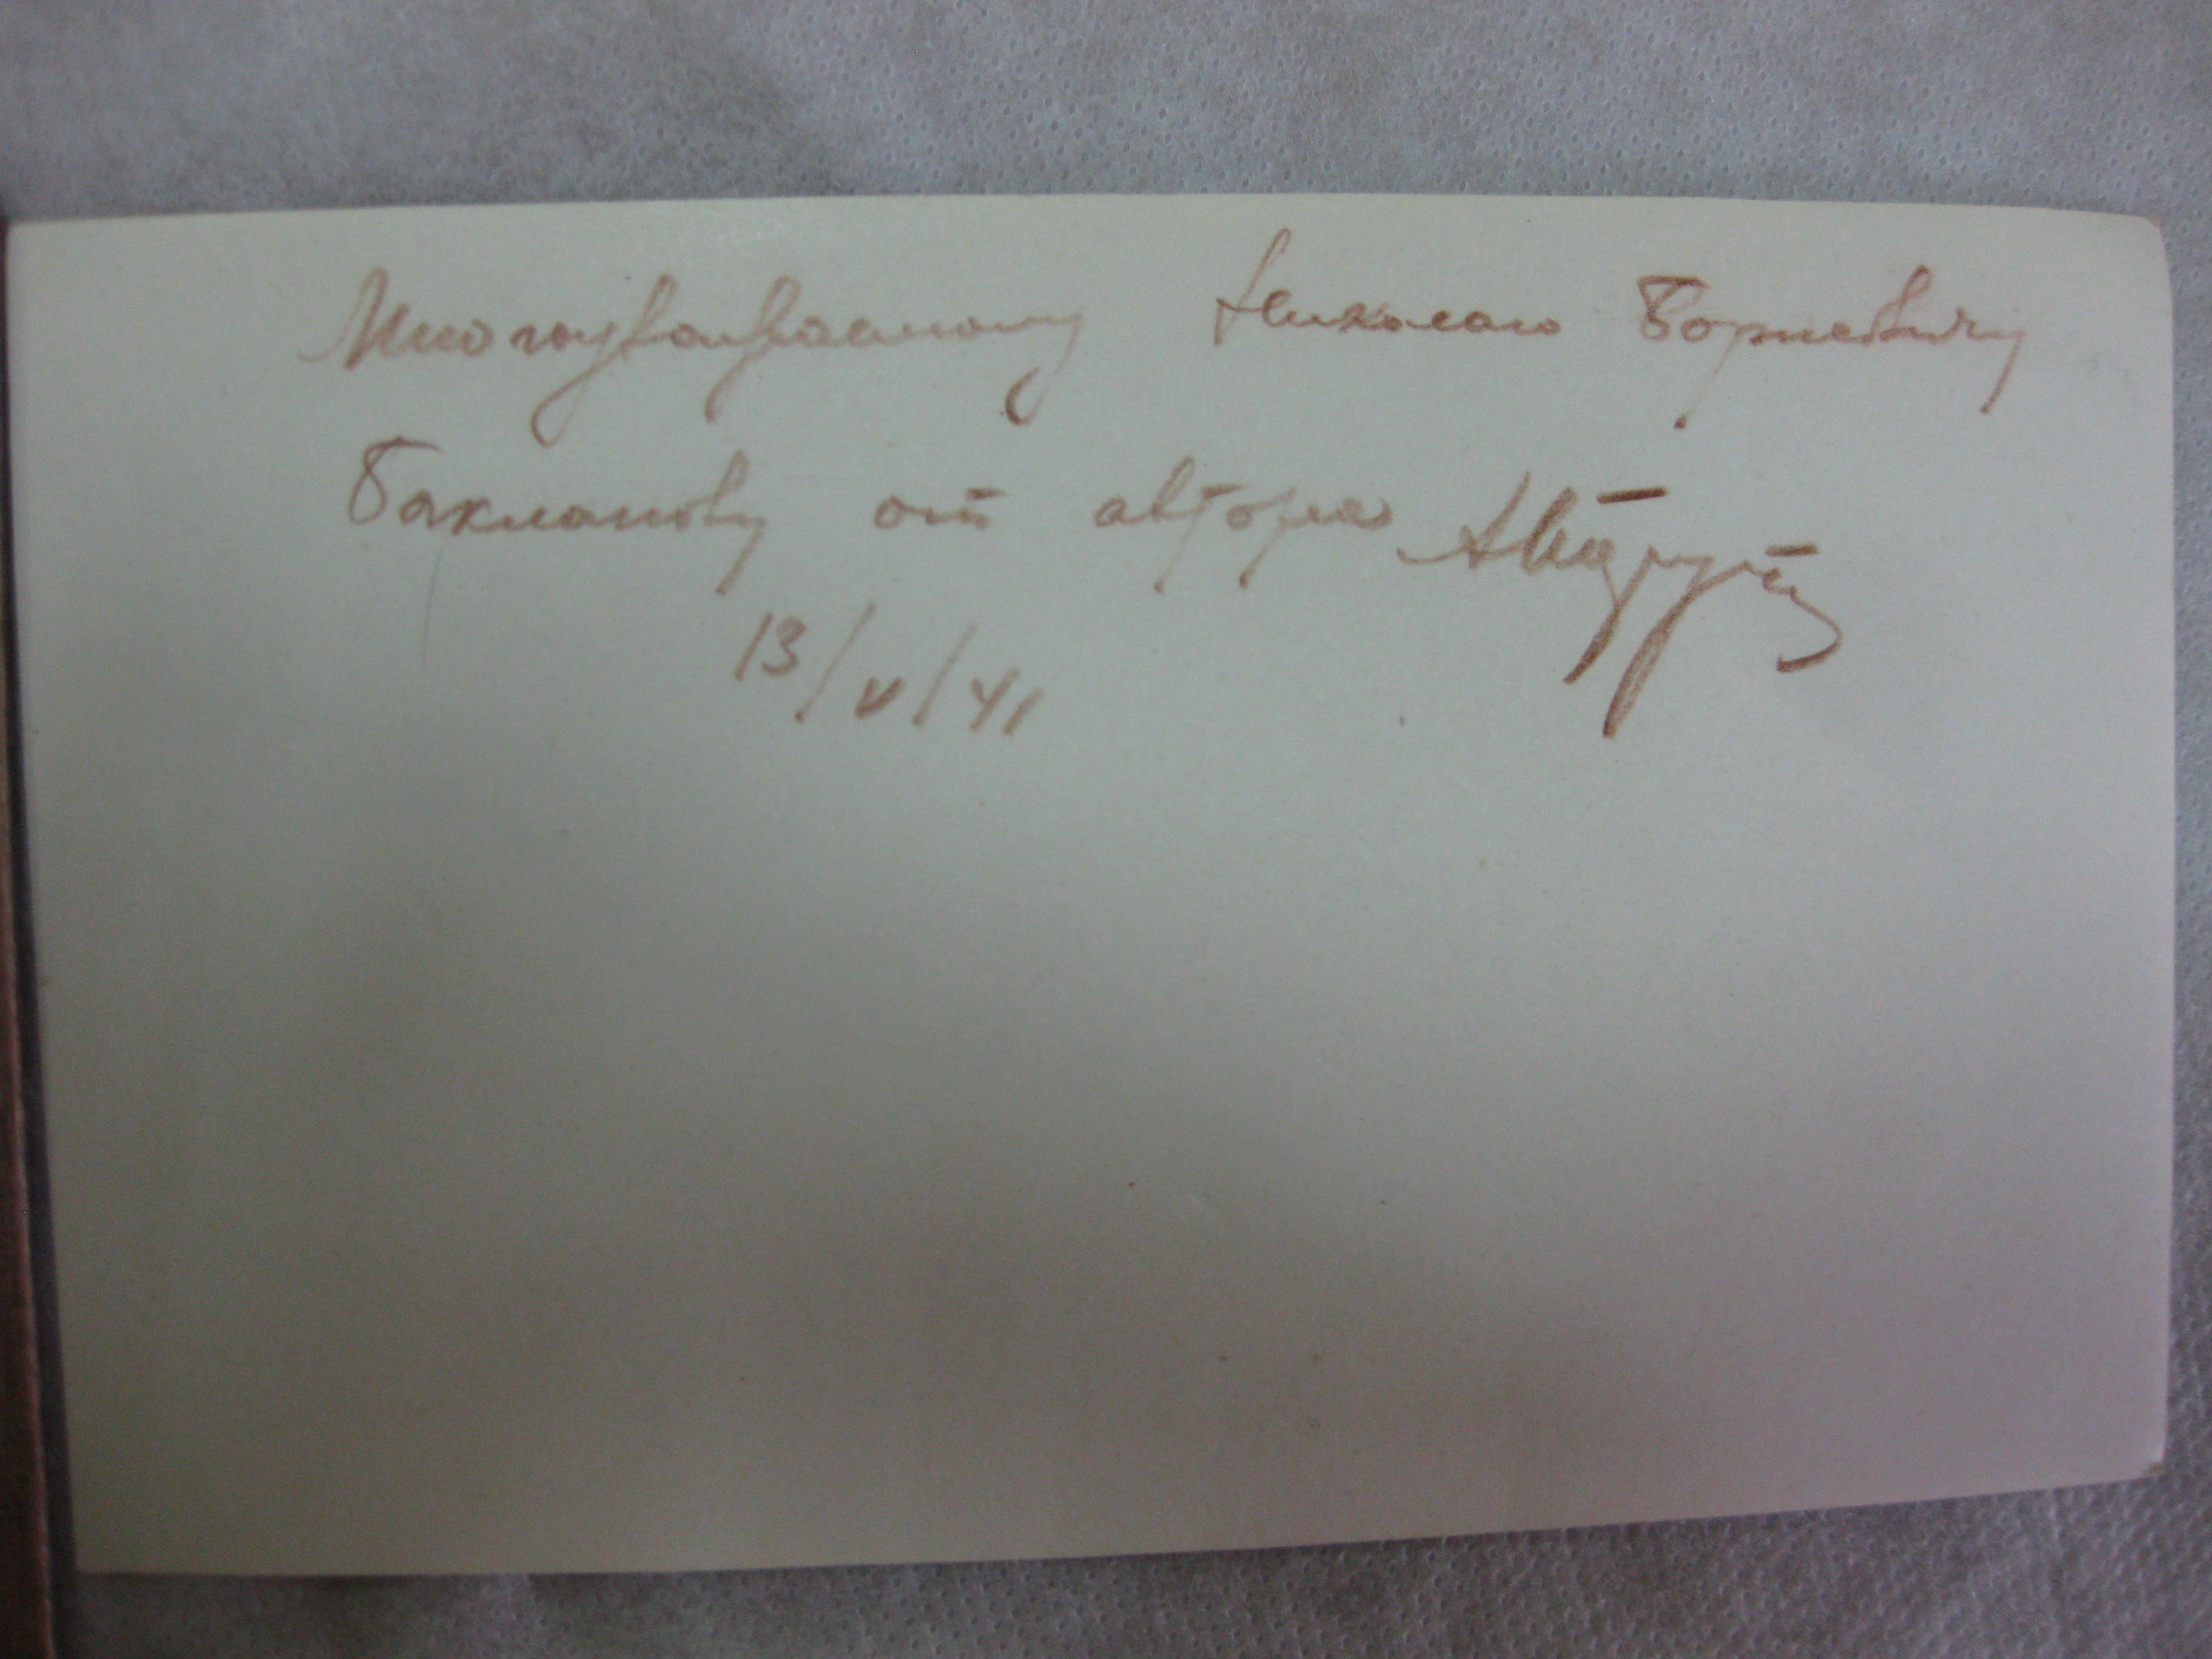 Многоуважаемому Николаю Борисовичу
Бакланову от автора
13/V/41